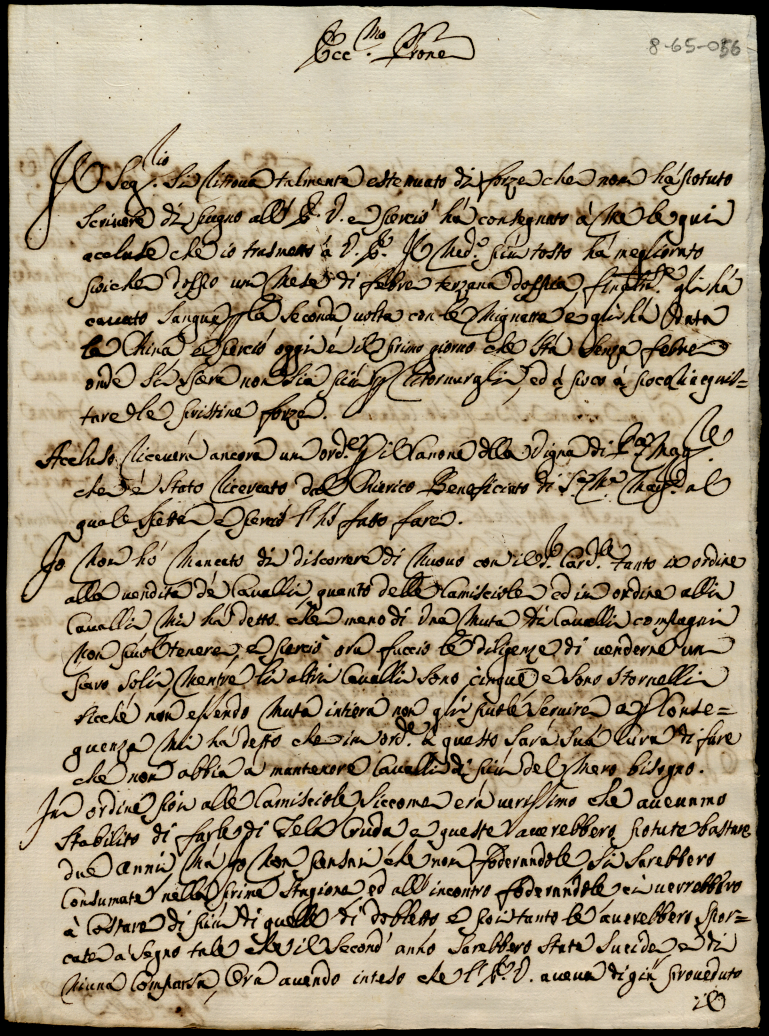 8-65-056
Ecc.mo Prone
Il Seg.rio si ritrova talmente estenuato di forze che non hà potuto
scrivere di pugno all' E. V. e perciò hà consegnato à me le qui
accluse che io trasmetto à V. E. Il Med.o più tosto hà megliorato
poiche doppo un mese di febre terzana doppia finalm.te gli hà
cavato sangue p la seconda volta con le mignatte e gli hà data
la China e perciò oggi è il primo giorno che stà senza febre
onde si spera non sia più p ritornargli, ed à poco à poco riacquis=
tare le pristine forze.
Accluso riceverà ancora un ord.e p il Canone della Vigna di S.a M. Magg.re
che è stato ricercato dal Chierico Beneficiato di S.a M.a Magg.re al
quale spetta e perciò l'hò fatto fare.
Io non hò mancato di discorrere di nuovo con il S. Card.le tanto in ordine
alla vendita de Cavalli, quanto delle Camisciole ed in ordine alli
Cavalli mi hà detto che meno di una muta di Cavalli compagni
non può tenere, e perciò ora faccio le diligenze di venderne un
paro soli, mentre li altri Cavalli sono cinque e sono stornelli
sicchè non essendo muta intiera non gli puole servire e p conse=
guenza mi hà detto che in ord.e à questo sarà sua cura di fare
che non abbia à mantenere Cavalli di più del mero bisogno.
In ordine poi alle Camisciole siccome era verissimo che avevamo
stabilito di farle di Tela Cruda e queste averebbero potute bastare
due anni, mà Io non pensai che non foderandole si sarebbero
consumate nella prima stagione ed all' incontro foderandole ci verrebbero
à costare di più di quelle di dobletto e poi tanto le averebbero spor=
cate à segno tale che il second' anno sarebbero state sucide e di
niuna comparsa, Ora avendo inteso che l' E. V. aveva di già proveduto
il